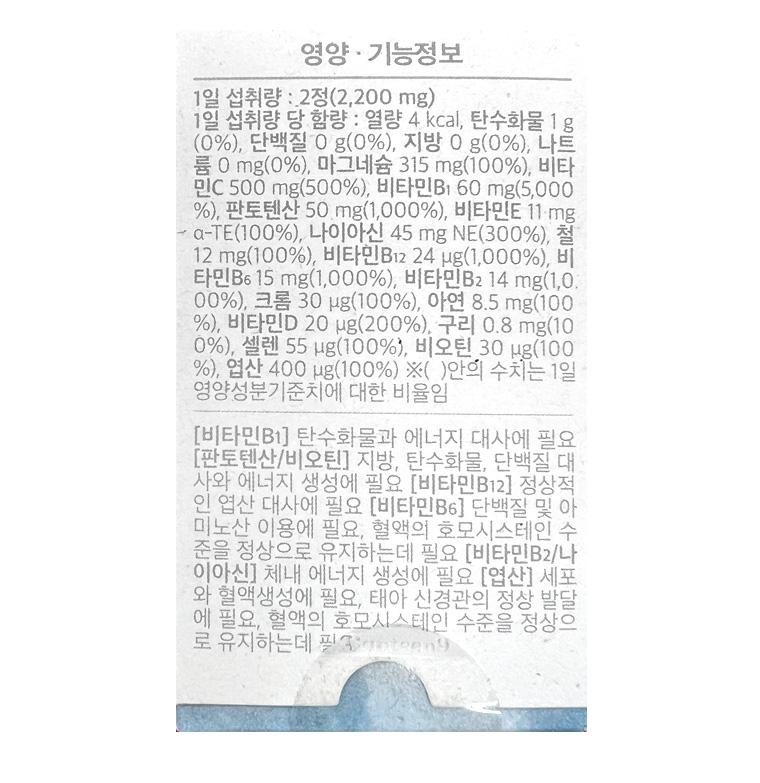 영양·기능정보
1일 섭취량 : 2정(2,200 mg)
1일 섭취량 당 함량 : 열량 4 kcal, 탄수화물 1 g
(0%), 단백질 0 g(0%), 지방 0 g(0%), 나트
륨 0 mg(0%), 마그네슘 315 mg(100%), 비타
민C 500 mg(500%), 비타민B1 60 mg(5,000
%), 판토텐산 50 mg(1,000%), 비타민E 11 mg
α-TE(100%), 나이아신 45 mg NE(300%), 철
12 mg(100%), 비타민B12 24 μg(1,000%), 비
타민B6 15 mg(1,000%), 비타민B2 14 mg(1,0
00%), 크롬 30 μg(100%), 아연 8.5 mg(100
%), 비타민D 20 μg(200%), 구리 0.8 mg(10
0%), 셀렌 55 μg(100%), 비오틴 30 μg(100
%), 엽산 400 μg(100%) ※( )안의 수치는 1일
영양성분기준치에 대한 비율임
[비타민B1] 탄수화물과 에너지 대사에 필요
[판토텐산/비오틴] 지방, 탄수화물, 단백질 대
사와 에너지 생성에 필요 [비타민B12] 정상적
인 엽산 대사에 필요 [비타민B6] 단백질 및 아
미노산 이용에 필요, 혈액의 호모시스테인 수
준을 정상으로 유지하는데 필요 [비타민B2/나
이아신] 체내 에너지 생성에 필요 [엽산] 세포
와 혈액생성에 필요, 태아 신경관의 정상 발달
에 필요, 혈액의 호모시스테인 수준을 정상으
로 유지하는데